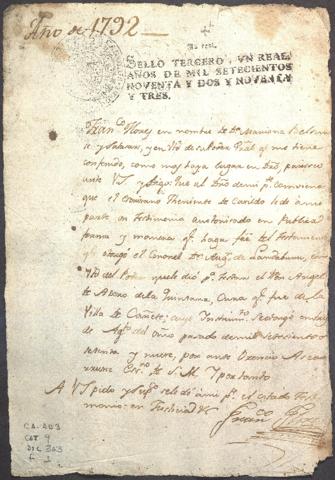 Año de 1792
Un real
SELLO TERCERO, VN REAL,
AÑOS DE MIL SETECIENTOS
NOVENTA Y DOS Y NOVENTA
Y TRES.
Fran.co Flores en nombre de D.a Mariana Belsun
y Salasar, y en Vd de su Poder Gral q.e me tiene
conferido, como mas haya lugar en Dro, paresco
ante VS, y digo: Que al Dro de mi p.te combiene
que el Escribano Theniente de Cavildo le de a mi
parte un testimonio autorisado en Publica
forma y manera q.e haga fee del testamento
q.e otorgó el Coronel D.n Aug.n de Landaburu, con
Vd del Poder que le dió p.a testar el D.n Angel
de Alono de la Quintana, Cura q.e fue de la
Villa de Cañete; cuyo Instrum.to se otorgó en
de Ag.to del año pasado de mil setecientos
setenta y nueve, por ante Orencio Ascar
runz Es.no de S.M. Y por tanto
A VS pido y sup.co se le dé a mi p.te el citado Testi
monio en Justicia V.a
Fran.co Flores
CA-AD3
CAT 9
DOC 303
f. 1